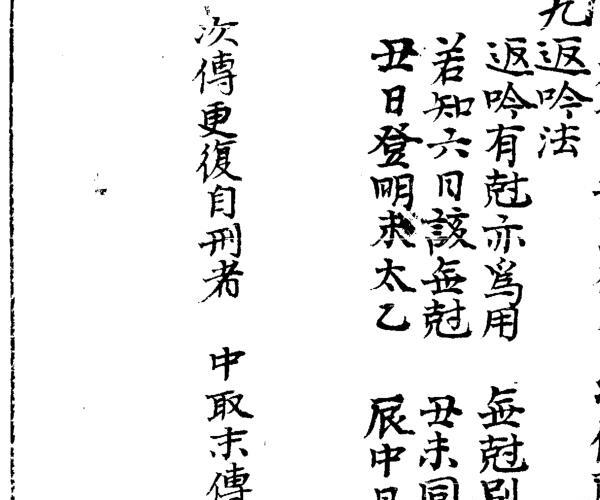 九返吟法
返吟有尅亦爲用 無尅別
若知六日該無尅 丑未同
丑日登明未太乙 辰中日
次傳更復自刑者 中取末傳